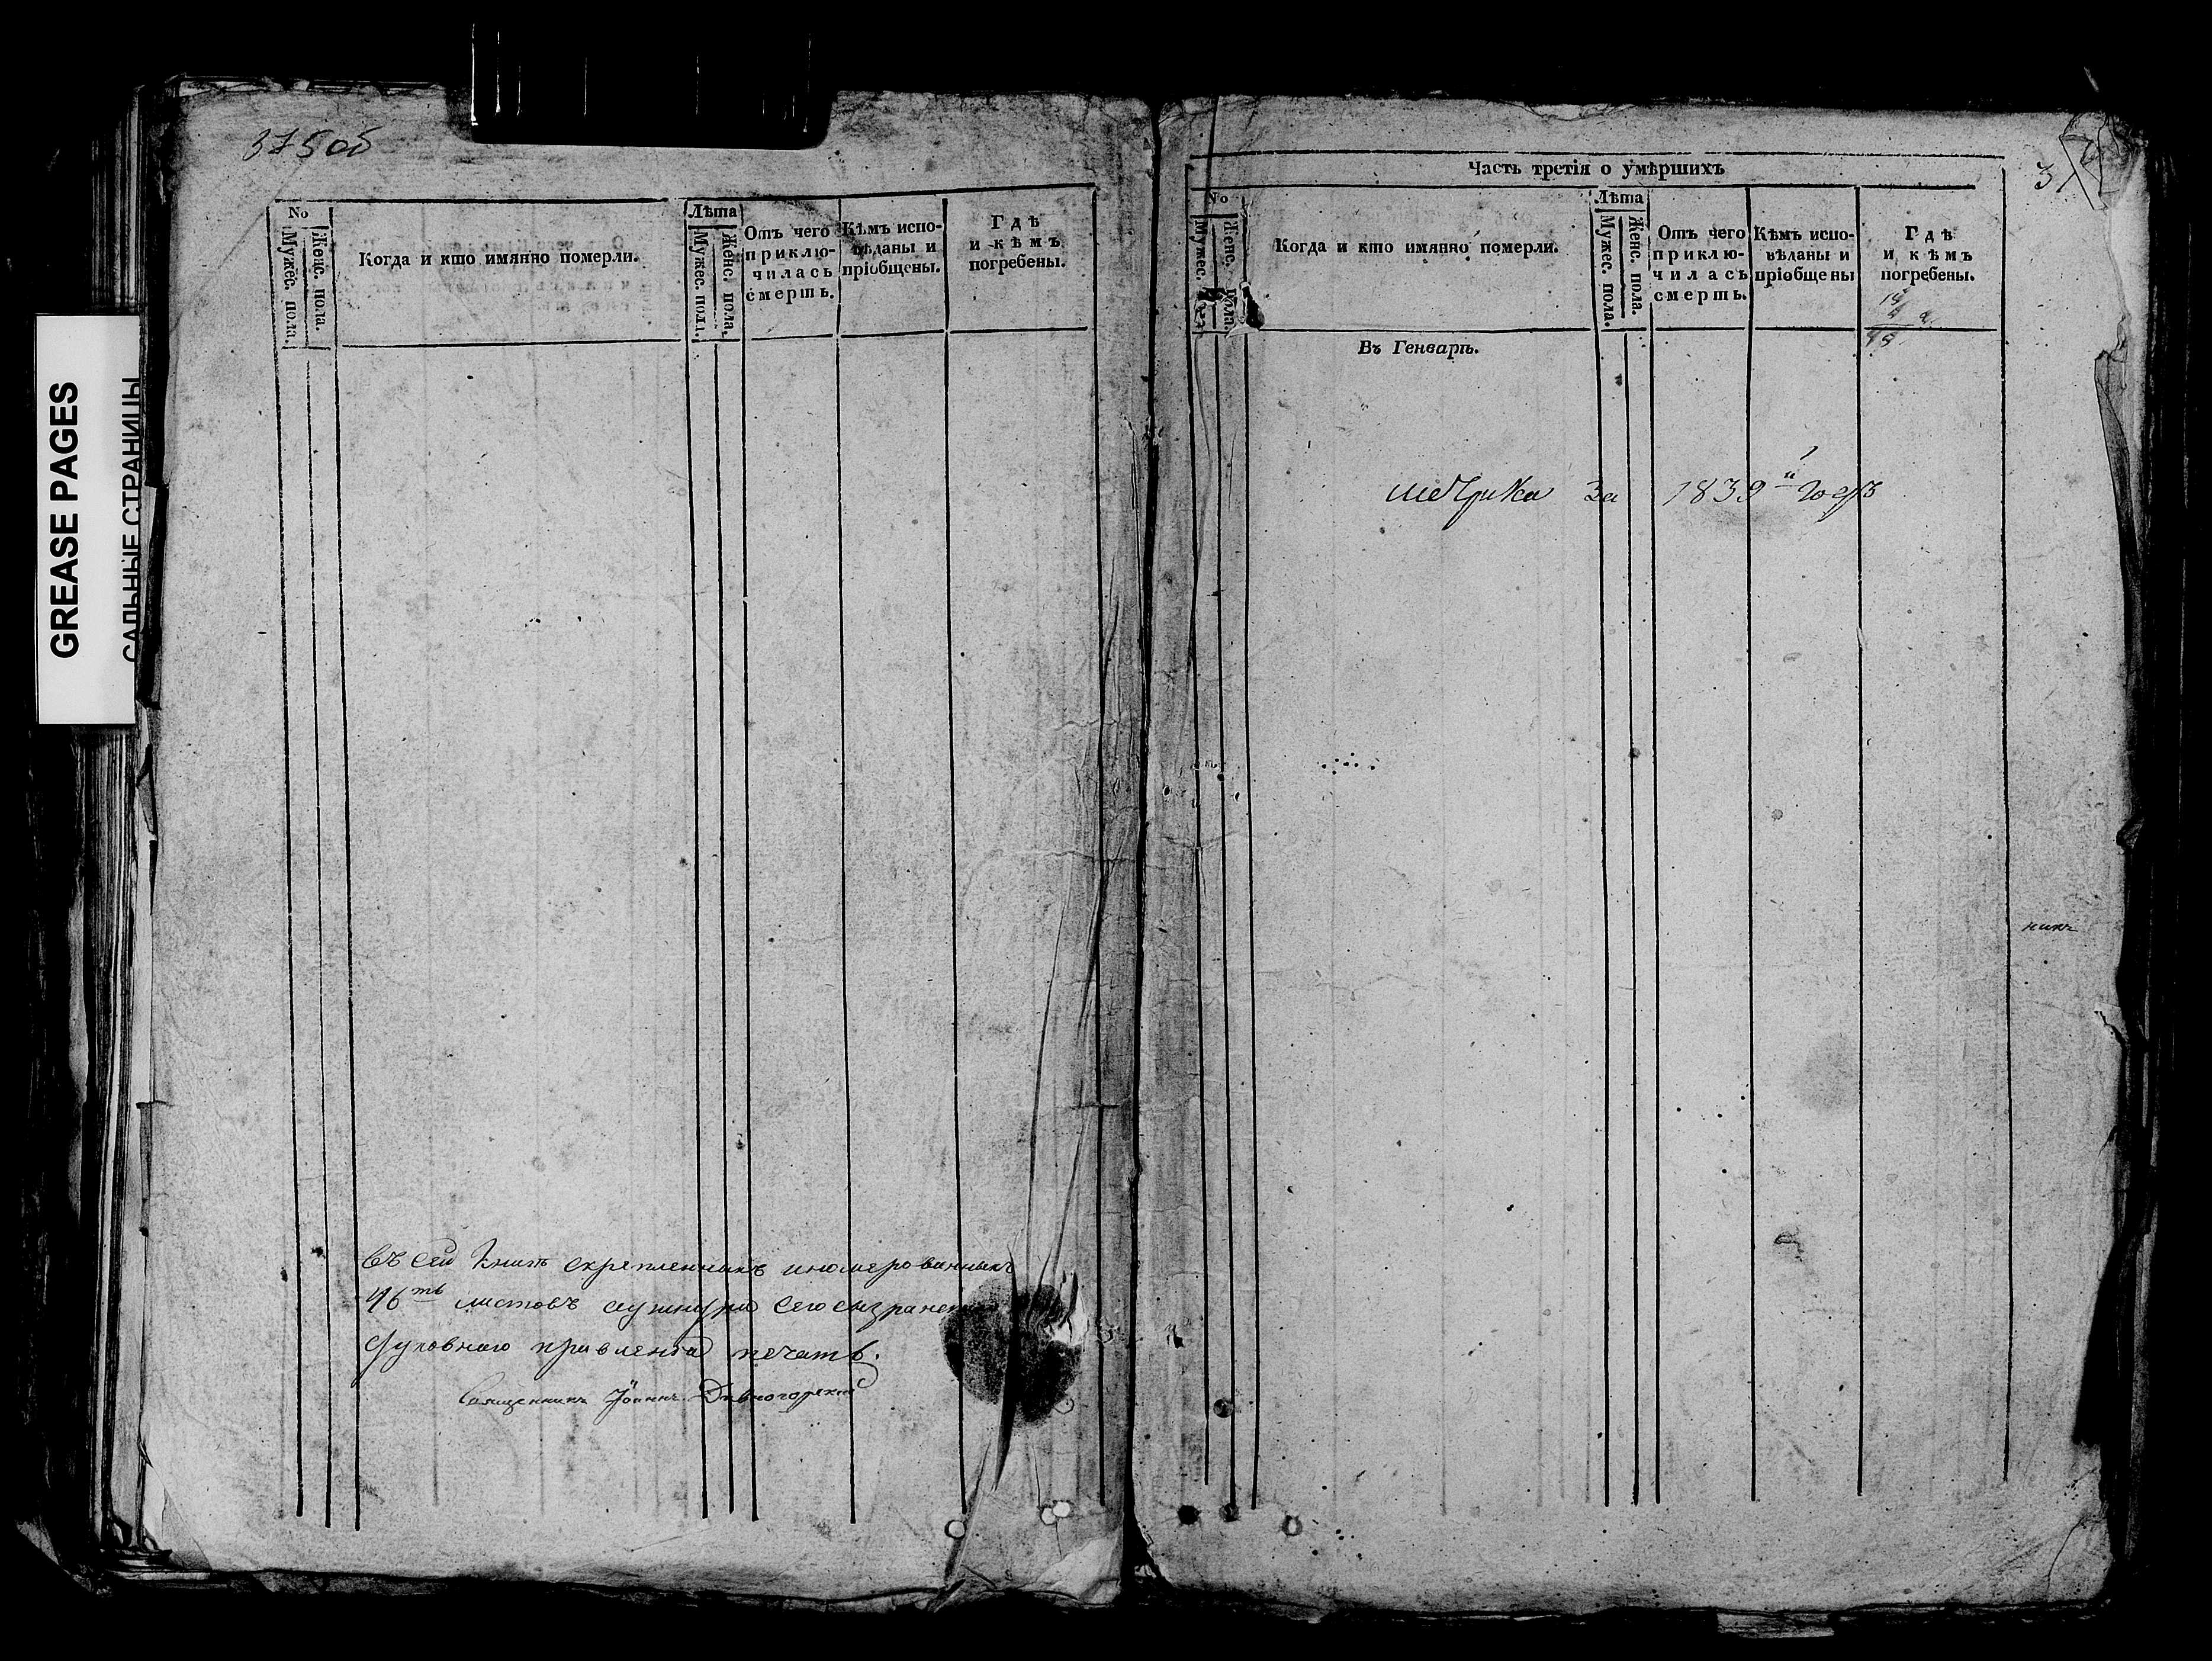 GREASE PAGES
САЛЬНЫЕ СТРАНИЦЫ
375 об
No
Мужес. пола.
Женс. пола.
Когда и кто имянно померли.
Лѣта
Мужес. пола.
Женс. пола.
Отъ чего приклю-чилась смерть.
Кѣмъ испо-вѣданы и пріобщены.
Гдѣ и кѣмъ погребены.
въ сей книгѣ скрепленныхъ иномерованныхъ
46ть листовъ аушнура сего сызранскаго
духовнаго правленія печать.
Священникъ Іоаннъ Дивногорскій
Часть третія о умѣршихъ
No
Мужес.
Женс. пола.
Когда и кто имянно померли.
Лѣта
Мужес. пола.
Женс. пола.
Отъ чего приклю-чилась смерть.
Кѣмъ испо-вѣданы и пріобщены
Гдѣ и кѣмъ погребены.
Въ Генварѣ.
метрика за 1839й годъ
никъ